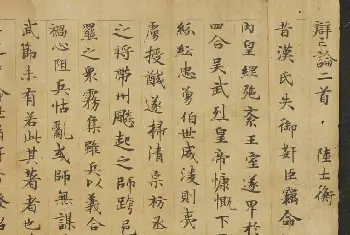 辯亡論二首 陸士衡
昔漢氏失御奸臣竊命
內皇綱弛紊王室遂卑於
四合吳武烈皇帝慷慨下
紛紜忠勇伯世威淩則夷
虜授馘遂掃清宗祊
之將帶州飈起之師跨邑
羆之衆霧集雖兵以義合
禍心阻兵怙亂或師無謀
武節未有若此其著者也